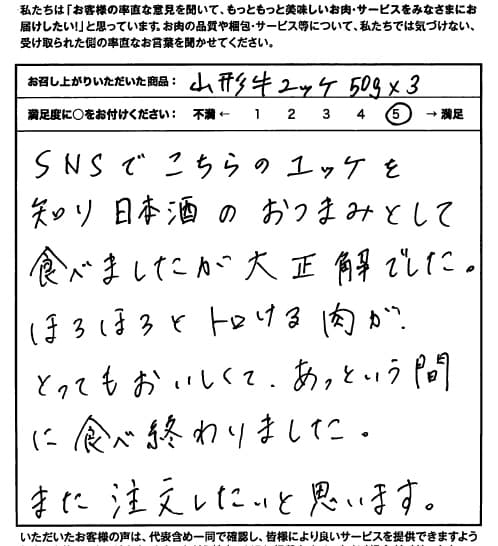 私たちは「お客様の率直な意見を聞いて、もっともっと美味しいお肉・サービスをみなさまにお
届けしたい！」と思っています。お肉の品質や梱包・サービス等について、私たちでは気づけない、
受け取られた側の率直なお言葉を聞かせてください。
お召し上がりいただいた商品： 山形牛ユッケ 50g×3
満足度に○をお付けください： 不満 ← 1 2 3 4 5 → 満足
SNSでこちらのユッケを
知り日本酒のおつまみとして
食べましたが大正解でした。
ほろほろとトロける肉が、
とってもおいしくて、あっという間
に食べ終わりました。
また注文したいと思います。
いただいたお客様の声は、代表含め一同で確認し、皆様により良いサービスを提供できますよう